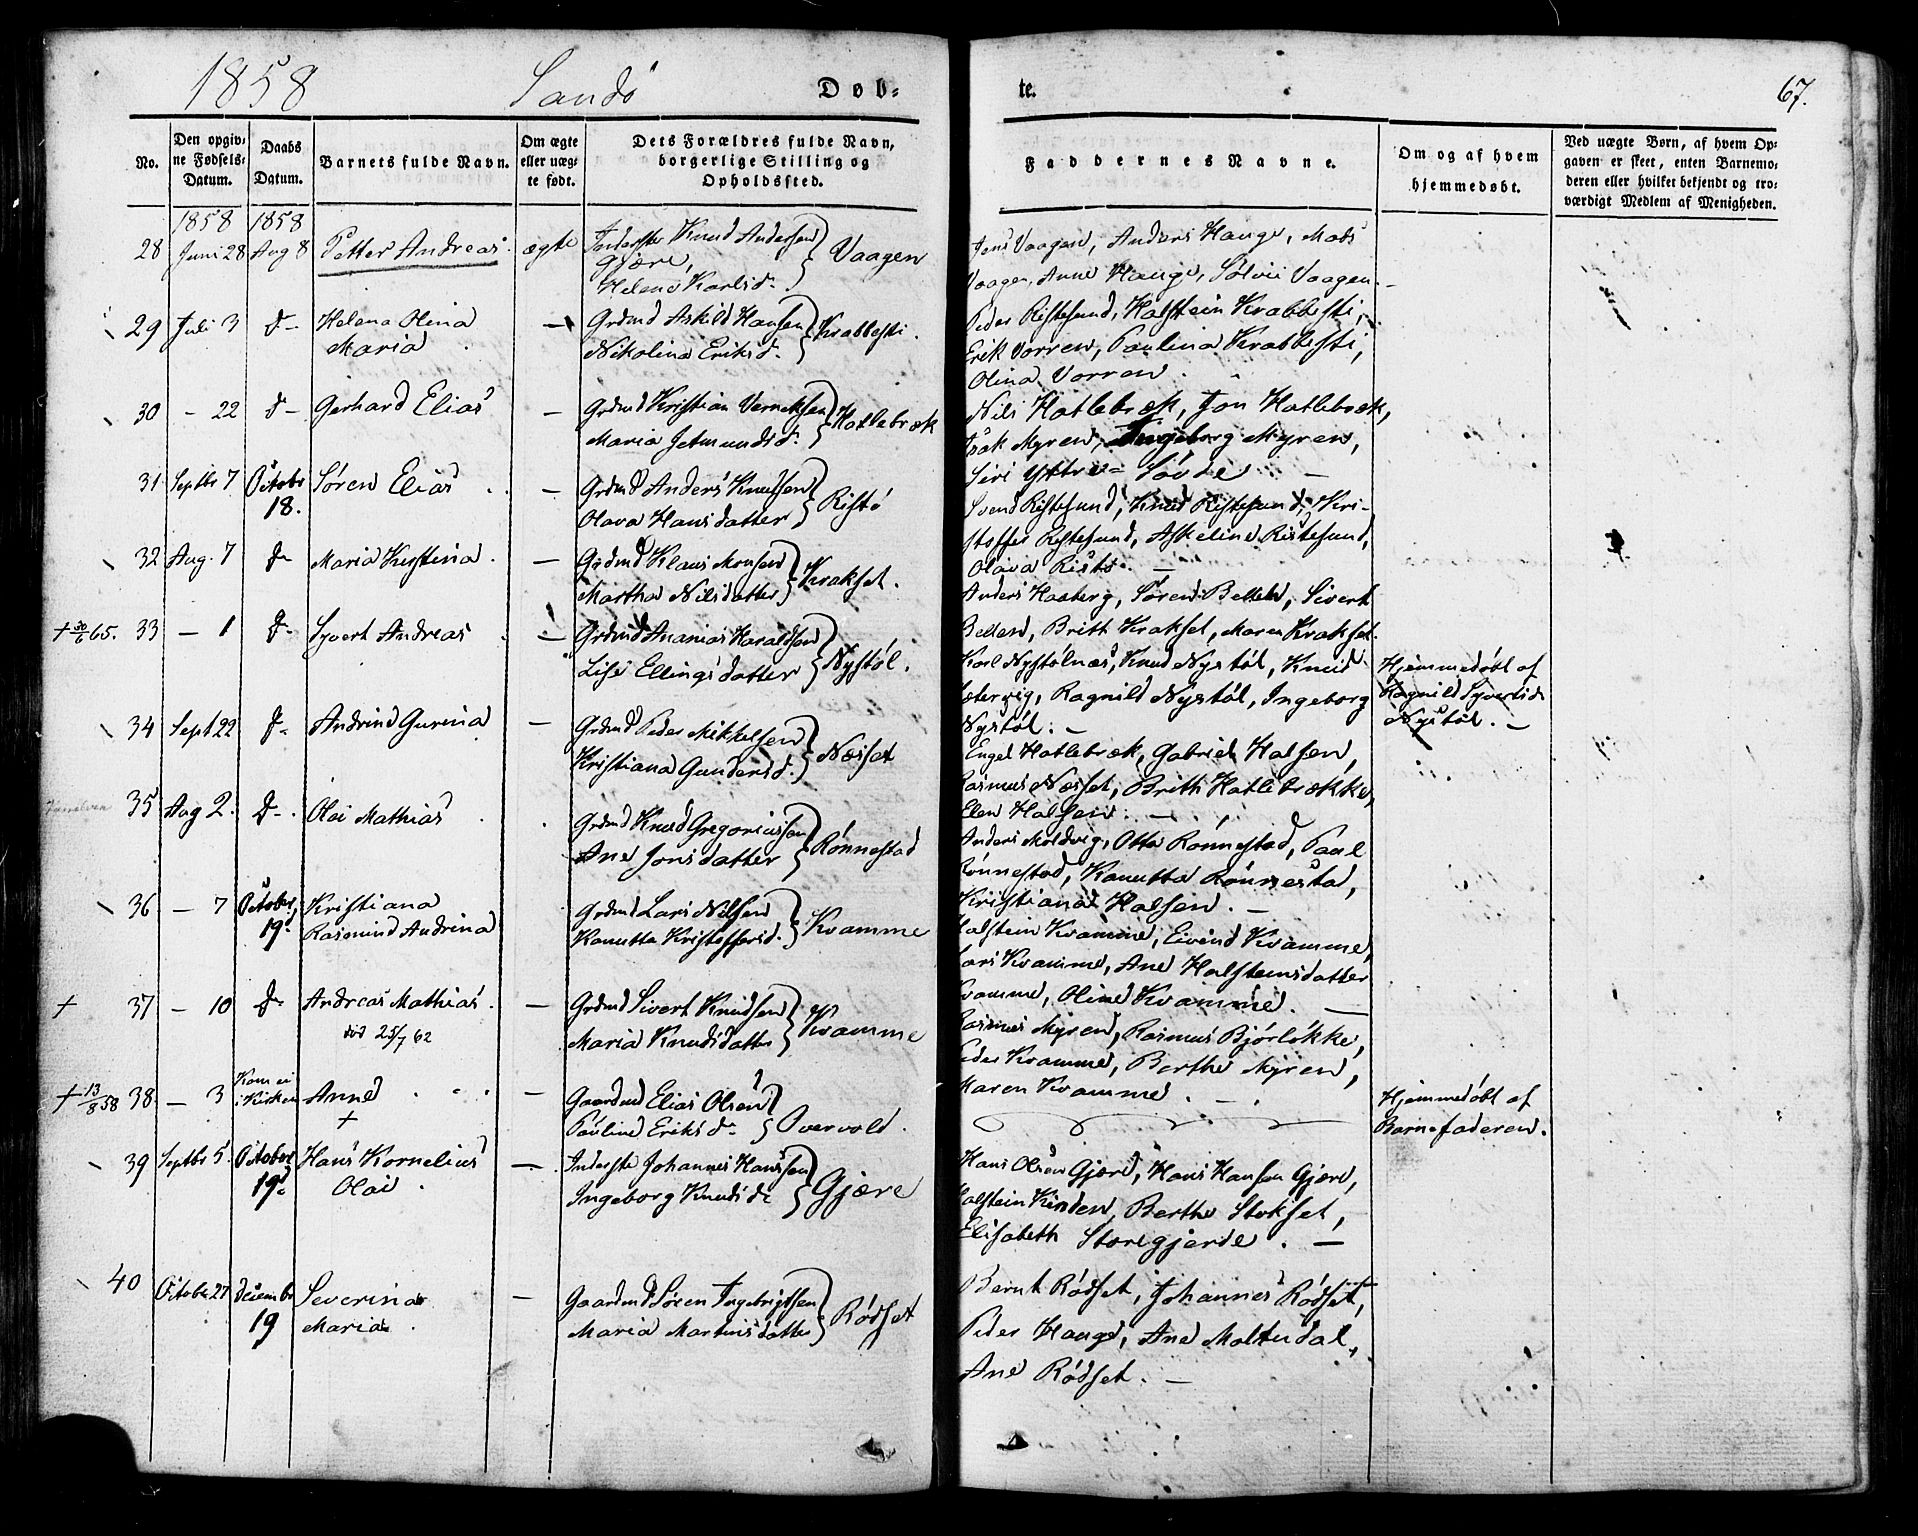 1858 Sandö Døb-
te. 67.
No.
Den opgiv-
ne Fødsels-
Datum.
Daabs
Datum.
Barnets fulde Navn.
Om ægte
eller uæg-
te født.
Dets Forældres fulde Navn,
borgerlige Stilling og
Opholdssted.
Faddernes Navne.
Om og af hvem
hjemmedøbt.
Ved uægte Børn, af hvem Op-
gaven er skeet, enten Barnemo-
deren eller hvilket bekjendt og tro-
værdigt Medlem af Menigheden.
1858 1858
28 Juni 28 Aug 8 Petter Andreas. ægte Inderste Knud Andersen
Gjære, Vaagen
Helene Karlsd.
Jens Vaagen, Anders Hauge, Mads
Vaagen, Anne Hauge, Sølvii Vaagen.
29 Juli 3 d- Helena Olina — Grdmd Askild Hansen
Maria Nikolina Eriksd. Krabbesti.
Peder Ristesund, Halstein Krabbesti,
Erik Vorren, Paulina Krabbesti,
Olina Vorren.
30 - 22 d- Gerhard Elias — Grdmd Kristian Verneksen
Maria Jetmundsd. Hatlebræk
Nils Hatlebræk, Jon Hatlebræk,
Isak Myren, Ingeborg Myren,
Siri Yttre= Søvde —
31 Septbr 7 Octobr Søren Elias — Grdmd Anders Knudsen
18. Olava Hansdatter Ristö
Svend Ristesund, Knud Ristesund, Kri-
stoffer Ristesund, Askeline Ristesund,
Olava Ristö. —
32 Aug. 7 d- Maria Kristina. — Grdmd Klaus Monsen
Martha Nilsdatter Krakset.
Anders Haaberg, Søren Bellen, Sivert
Bellen, Brith Krakset, Maren Krakset.
+ 30/6 65. 33 — 1 d- Syvert Andreas — Grdmd Ananias Haraldsen
Lise Ellingsdatter Nystöl.
Karl Nystölnæs, Knud Nystöl, Knud
Sætervig, Ragnild Nystöl, Ingeborg
Nystöl. —
Hjemmedöbt af
Ragnild Syvertsd.
Nystöl. —
34 Sept 22 d- Andrine Gurina — Grdmd Peder Mikkelsen
Kristiana Gundersd. Næsset
Engel Hatlebræk, Gabriel Halsen,
Rasmus Næsset, Brith Hatlebrække,
Elen Halsen. —
35 Aug 2. d-. Olai Mathias Grdmd Knud Gregoriussen
Ane Jonsdatter Rönnestad
Anders Moldvig, Otto Rönnestad, Paul
Rönnestad, Kanutta Rönnestad,
Kristiana Halsen. —
36 — 7 October Kristiana
19. Rasmine Andrina
Grdmd Lars Nilsen
Kanutta Kristoffersd. Kvamme
Halstein Kvamme, Eivind Kvamme,
Lars Kvamme, Ane Halsteinsdatter
Kvamme, Oline Kvamme. —
+ 37 — 10 d- Andreas Mathias. — Grdmd Sivert Knudsen
död 25/7 62 Maria Knudsdatter Kvamme
Rasmus Myren, Rasmus Bjørlökke,
Peder Kvamme, Berthe Myren,
Karen Kvamme. —
+ 13/8 58 38. — 3 Kom ei
i Kirken Anne — Gaardmd Elias Olsen
+ Pauline Eriksd. Overvold.
Hjemmedöbt af
Barnefaderen.
39 Septbr 5. October Hans Kornelius —. Inderste Johannes Hanssen
19. Olai. Ingeborg Knudsd. Gjære
Hans Olsen Gjære, Hans Hansen Gjære,
Halstein Kinden, Berthe Stokset,
Elisabeth Storegjerde. —
40 October 27 Decembr Severina — Gaardmd Sören Ingebrigtsen
19 Maria. Maria Martinusdatter Rödset
Bernt Rödset, Johannes Rödset,
Peder Hauge, Ane Moltudal,
Ane Rödset. —